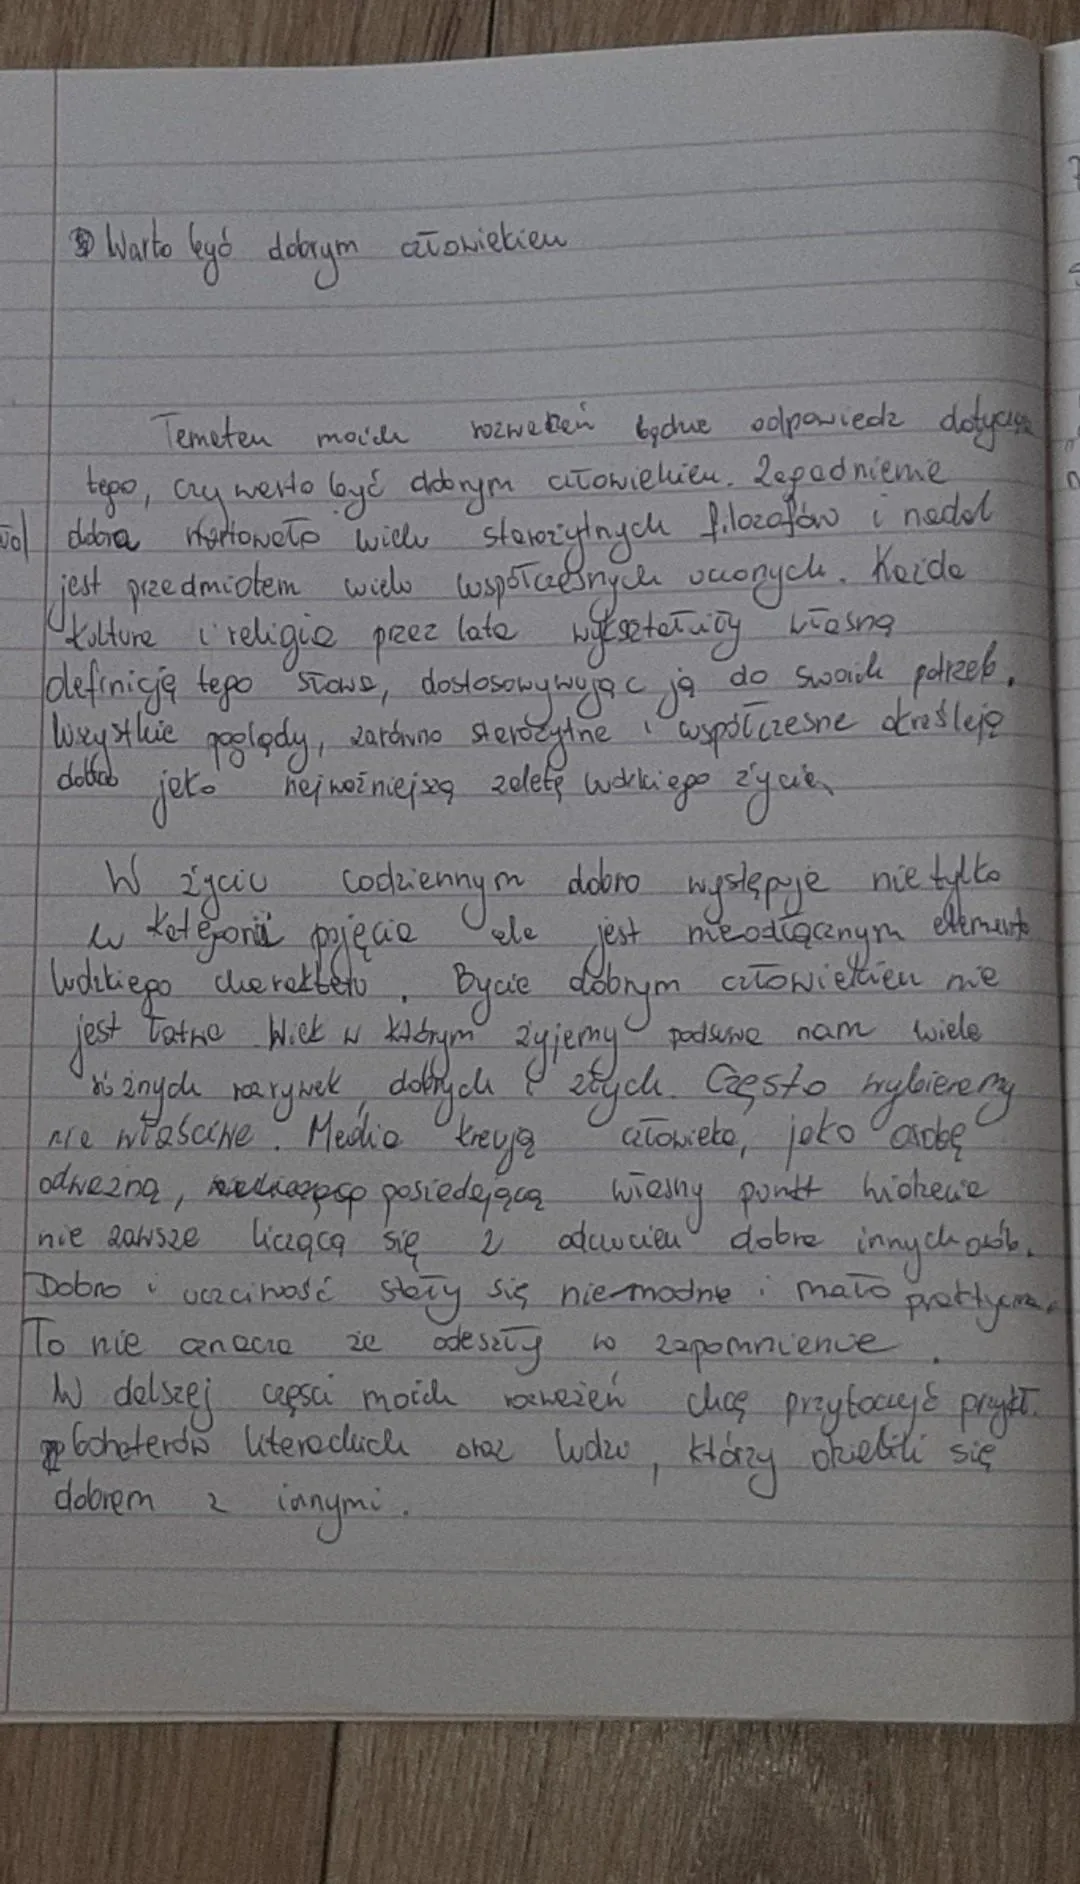 Warto być dobrym człowiekiem
Tematem moich rozważań będzie odpowiedz dotycząca
tego, czy warto być dobrym człowiekiem. Zagadnienie
dobra nurtowało wielu starożytnych filozofów i nadal
jest przedmiotem wielu współczesnych uczonych. Każda
kultura i religia przez lata wykształciły własną
definicję tego słowa, dostosowywując ją do swoich potrzeb.
Wszystkie poglądy, zarówno starożytne i współczesne określają
dobro jako najważniejszą zaletę ludzkiego życia
W życiu codziennym dobro występuje nie tylko
w kategorii pojęcia ale jest nieodłącznym elementem
ludzkiego charakteru. Bycie dobrym człowiekiem nie
jest łatwe Wiek w którym żyjemy podsuwa nam wiele
różnych rozrywek, dobrych i złych. Często wybieramy
nie właściwe. Media kreują człowieka, jako osobę
odważną, posiadającą własny punkt widzenia
nie zawsze liczącą się z odczuciem dobra innych osób.
Dobro i uczciwość stały się nie modne i mało praktyczne.
To nie oznacza że odeszły w zapomnienie.
W dalszej części moich rozważań chcę przytoczyć przykł.
bohaterów literackich oraz ludzi, którzy dzielili się
dobrem z innymi.